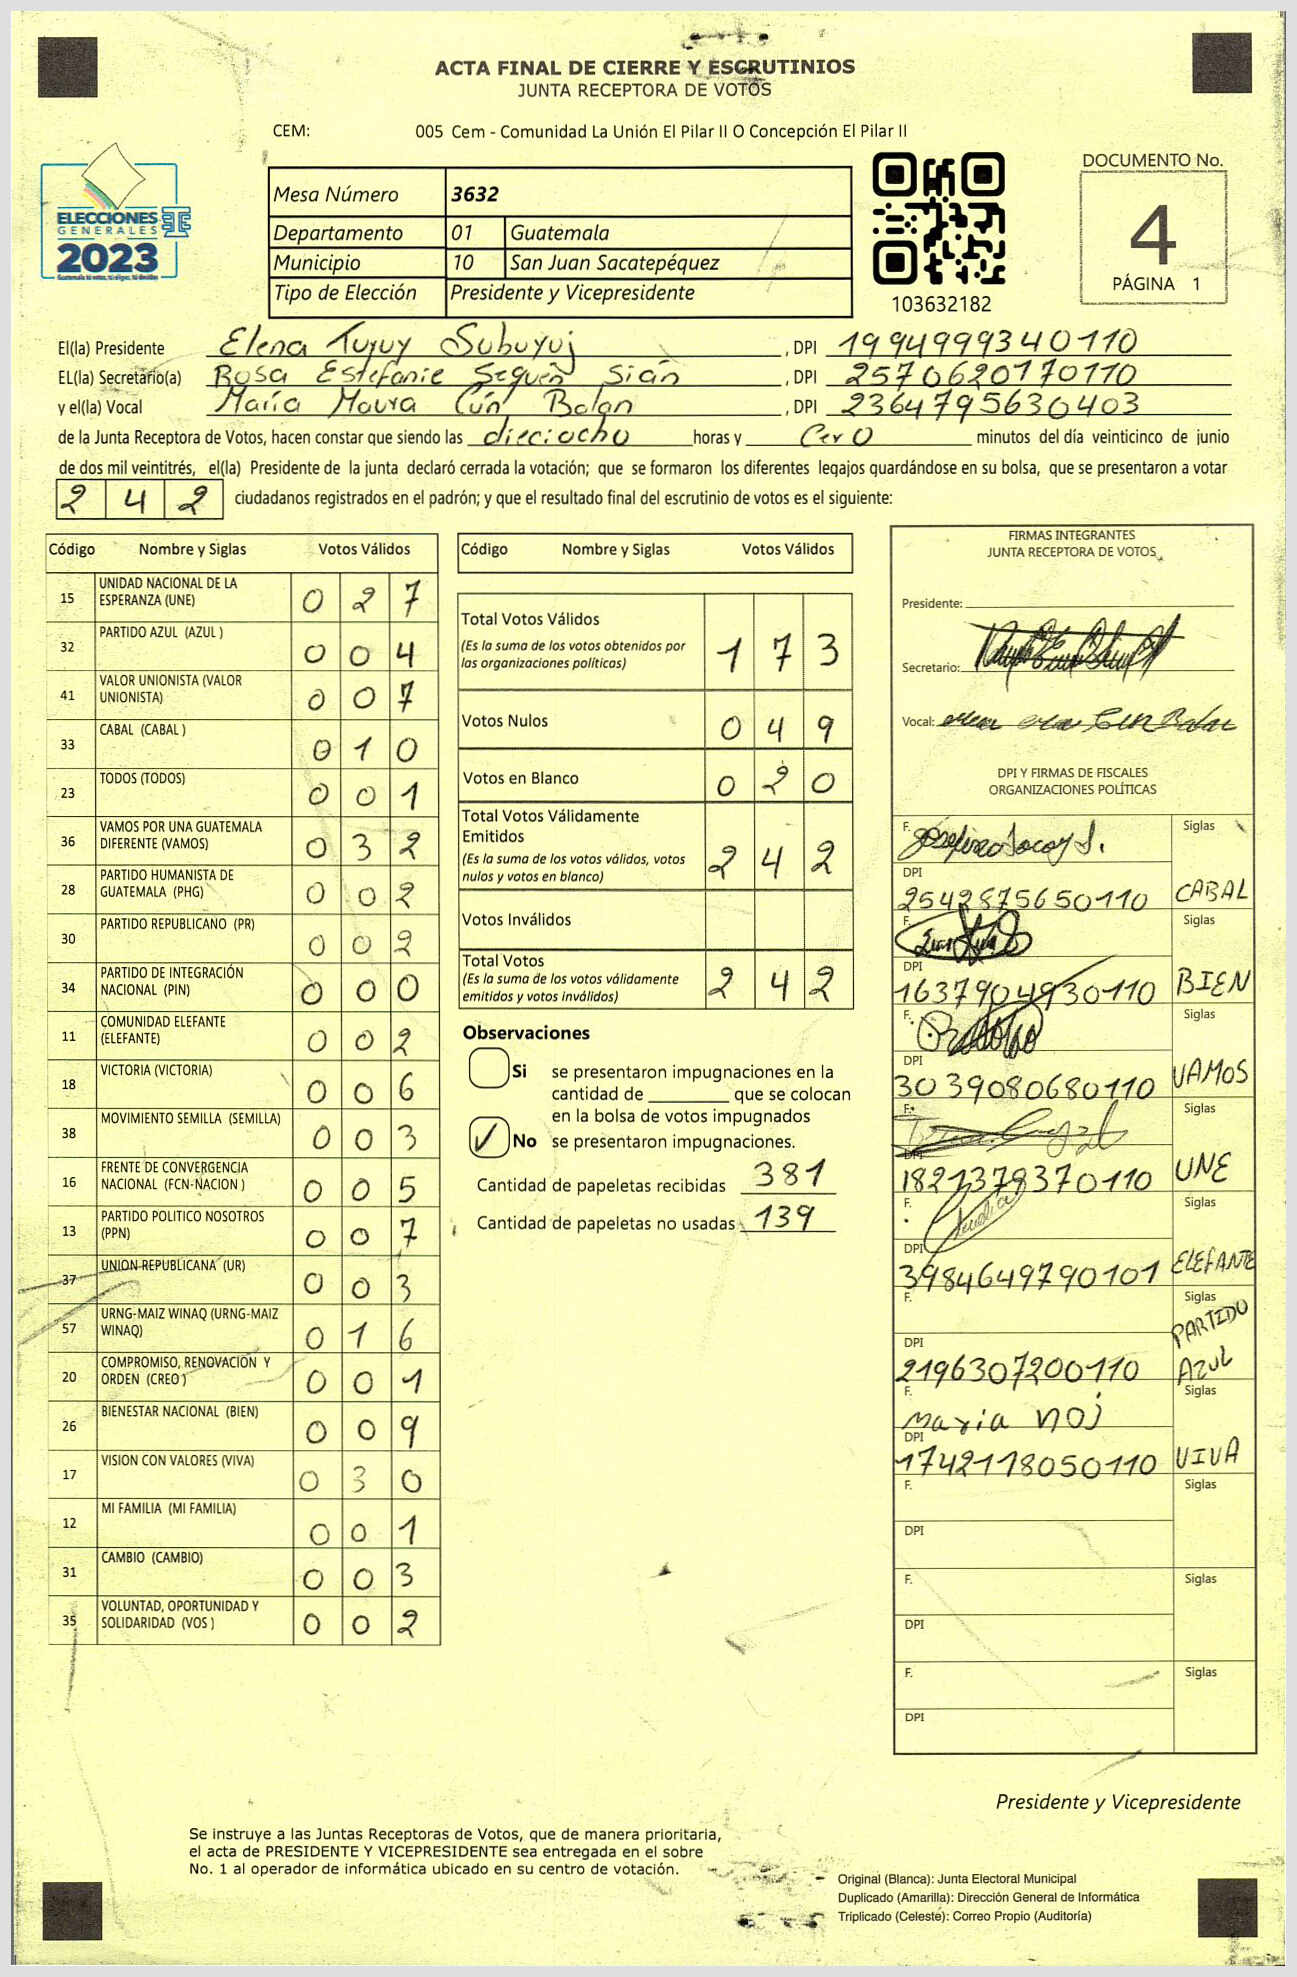 ACTA FINAL DE CIERRE Y ESCRUTINIOS
JUNTA RECEPTORA DE VOTOS
CEM: 005 Cem - Comunidad La Unión El Pilar II O Concepción El Pilar II
ELECCIONES
GENERALES
2023
Mesa Número 3632
Departamento 01 Guatemala
Municipio 10 San Juan Sacatepéquez
Tipo de Elección Presidente y Vicepresidente
103632182
DOCUMENTO No.
4
PÁGINA 1
El(la) Presidente Elena Turuy Subuyuj, DPI 1994999340110
EL(la) Secretario(a) Rosa Estefanie Sequen Sián, DPI 2570620170110
y el(la) Vocal María Maura Cún Bolan, DPI 2364795630403
de la Junta Receptora de Votos, hacen constar que siendo las dieciocho horas y Cero minutos del día veinticinco de junio
de dos mil veintitrés, el(la) Presidente de la junta declaró cerrada la votación; que se formaron los diferentes legajos guardándose en su bolsa, que se presentaron a votar
2 4 2 ciudadanos registrados en el padrón; y que el resultado final del escrutinio de votos es el siguiente:
Código Nombre y Siglas Votos Válidos
15 UNIDAD NACIONAL DE LA ESPERANZA (UNE) 0 2 7
32 PARTIDO AZUL (AZUL ) 0 0 4
41 VALOR UNIONISTA (VALOR UNIONISTA) 0 0 7
33 CABAL (CABAL ) 0 1 0
23 TODOS (TODOS) 0 0 1
36 VAMOS POR UNA GUATEMALA DIFERENTE (VAMOS) 0 3 2
28 PARTIDO HUMANISTA DE GUATEMALA (PHG) 0 0 2
30 PARTIDO REPUBLICANO (PR) 0 0 2
34 PARTIDO DE INTEGRACIÓN NACIONAL (PIN) 0 0 0
11 COMUNIDAD ELEFANTE (ELEFANTE) 0 0 2
18 VICTORIA (VICTORIA) 0 0 6
38 MOVIMIENTO SEMILLA (SEMILLA) 0 0 3
16 FRENTE DE CONVERGENCIA NACIONAL (FCN-NACION ) 0 0 5
13 PARTIDO POLITICO NOSOTROS (PPN) 0 0 7
37 UNION REPUBLICANA (UR) 0 0 3
57 URNG-MAIZ WINAQ (URNG-MAIZ WINAQ) 0 1 6
20 COMPROMISO, RENOVACIÓN Y ORDEN (CREO ) 0 0 1
26 BIENESTAR NACIONAL (BIEN) 0 0 9
17 VISION CON VALORES (VIVA) 0 3 0
12 MI FAMILIA (MI FAMILIA) 0 0 1
31 CAMBIO (CAMBIO) 0 0 3
35 VOLUNTAD, OPORTUNIDAD Y SOLIDARIDAD (VOS ) 0 0 2
Código Nombre y Siglas Votos Válidos
Total Votos Válidos 1 7 3
(Es la suma de los votos obtenidos por
las organizaciones políticas)
Votos Nulos 0 4 9
Votos en Blanco 0 2 0
Total Votos Válidamente
Emitidos 2 4 2
(Es la suma de los votos válidos, votos
nulos y votos en blanco)
Votos Inválidos
Total Votos 2 4 2
(Es la suma de los votos válidamente
emitidos y votos inválidos)
Observaciones
Si se presentaron impugnaciones en la
cantidad de ________ que se colocan
en la bolsa de votos impugnados
No se presentaron impugnaciones.
Cantidad de papeletas recibidas 381
Cantidad de papeletas no usadas 139
FIRMAS INTEGRANTES
JUNTA RECEPTORA DE VOTOS
Presidente:
Secretario:
Vocal: Cun Balan
DPI Y FIRMAS DE FISCALES
ORGANIZACIONES POLÍTICAS
F. Siglas
DPI
2542875650110 CABAL
F. Siglas
DPI
1637904930110 BIEN
F. Siglas
DPI
3039080680110 VAMOS
F. Siglas
DPI
1821379370110 UNE
F. Siglas
DPI
3984649790101 ELEFANTE
F. Siglas
DPI
2196307200110 PARTIDO AZUL
F. maria noj Siglas
DPI
1742118050110 VIVA
F. Siglas
DPI
F. Siglas
DPI
F. Siglas
DPI
Presidente y Vicepresidente
Se instruye a las Juntas Receptoras de Votos, que de manera prioritaria,
el acta de PRESIDENTE Y VICEPRESIDENTE sea entregada en el sobre
No. 1 al operador de informática ubicado en su centro de votación.
Original (Blanca): Junta Electoral Municipal
Duplicado (Amarilla): Dirección General de Informática
Triplicado (Celeste): Correo Propio (Auditoría)